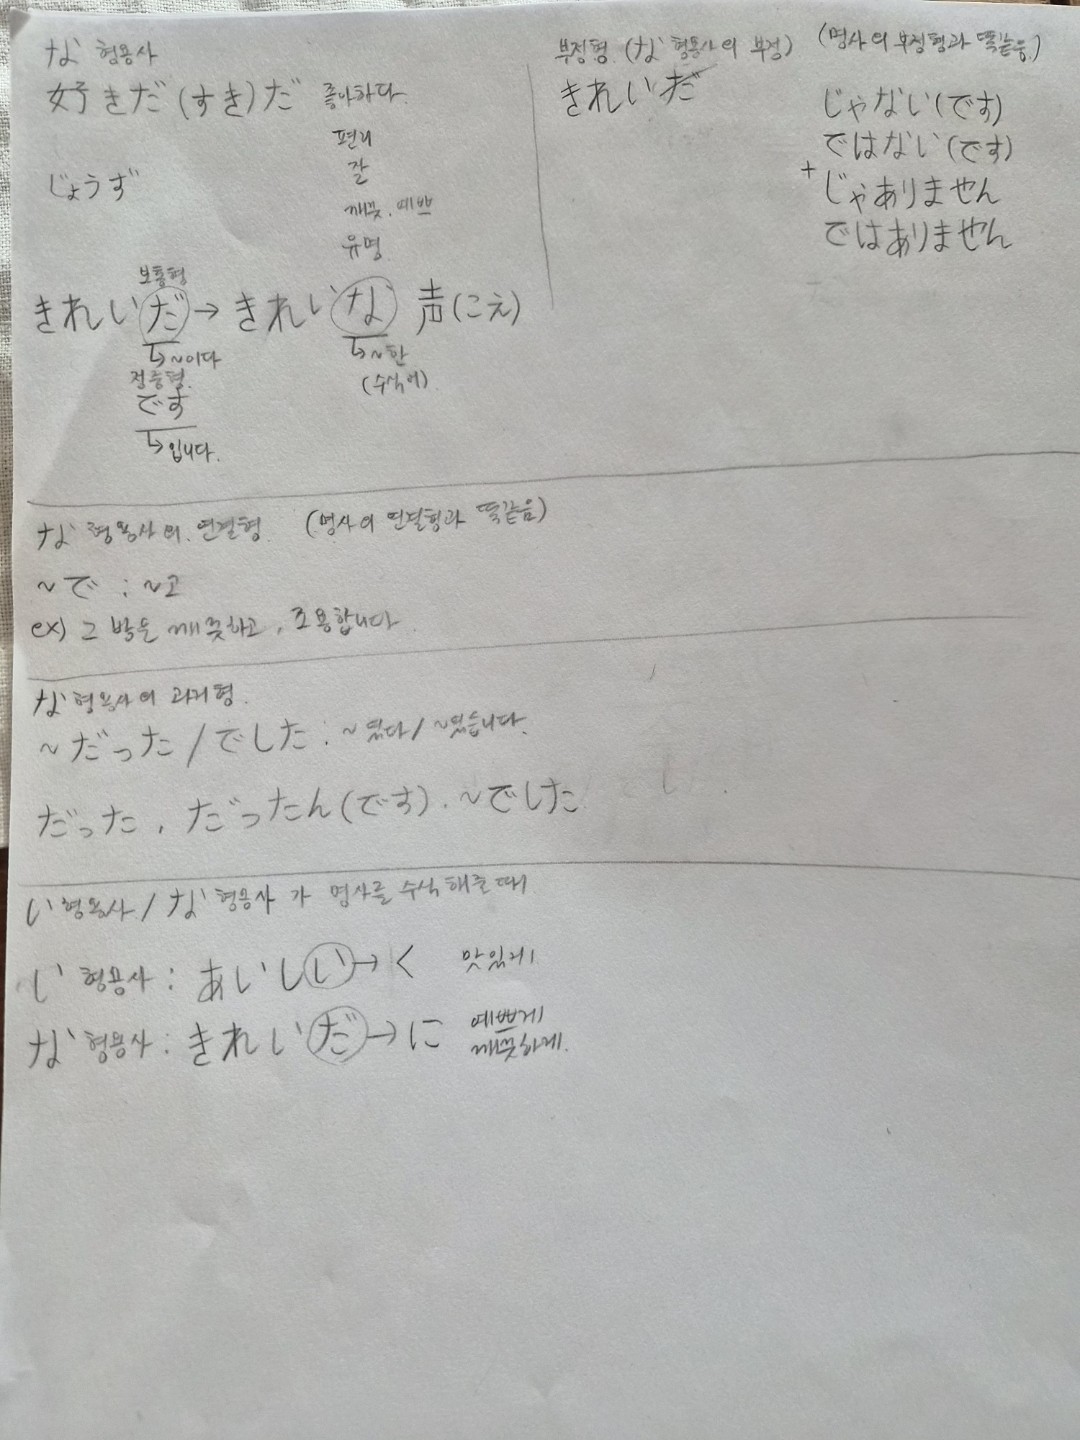 な 형용사
好きだ(すき)だ 좋아하다.
편리
じょうず 잘
깨끗. 예쁘
유명
보통형
きれいだ→ きれいな 声(こえ)
↳~이다 ↳~한
정중형. (수식어).
です
↳입니다.
부정형. (な 형용사의 부정) (명사의 부정형과 똑같음)
きれいだ
じゃない(です)
ではない(です)
+ じゃありません
ではありません
な 형용사의 연결형. (명사의 연결형과 똑같음)
~で : ~고
ex) 그 방은 깨끗하고, 조용합니다.
な 형용사의 과거형.
~だった / でした : ~였다 / ~였습니다.
だった, だったん(です). ~でした
い 형용사 / な 형용사 가 명사를 수식해줄 때
い 형용사 : あいしい→く 맛있게
な 형용사 : きれいだ→に 예쁘게
깨끗하게.